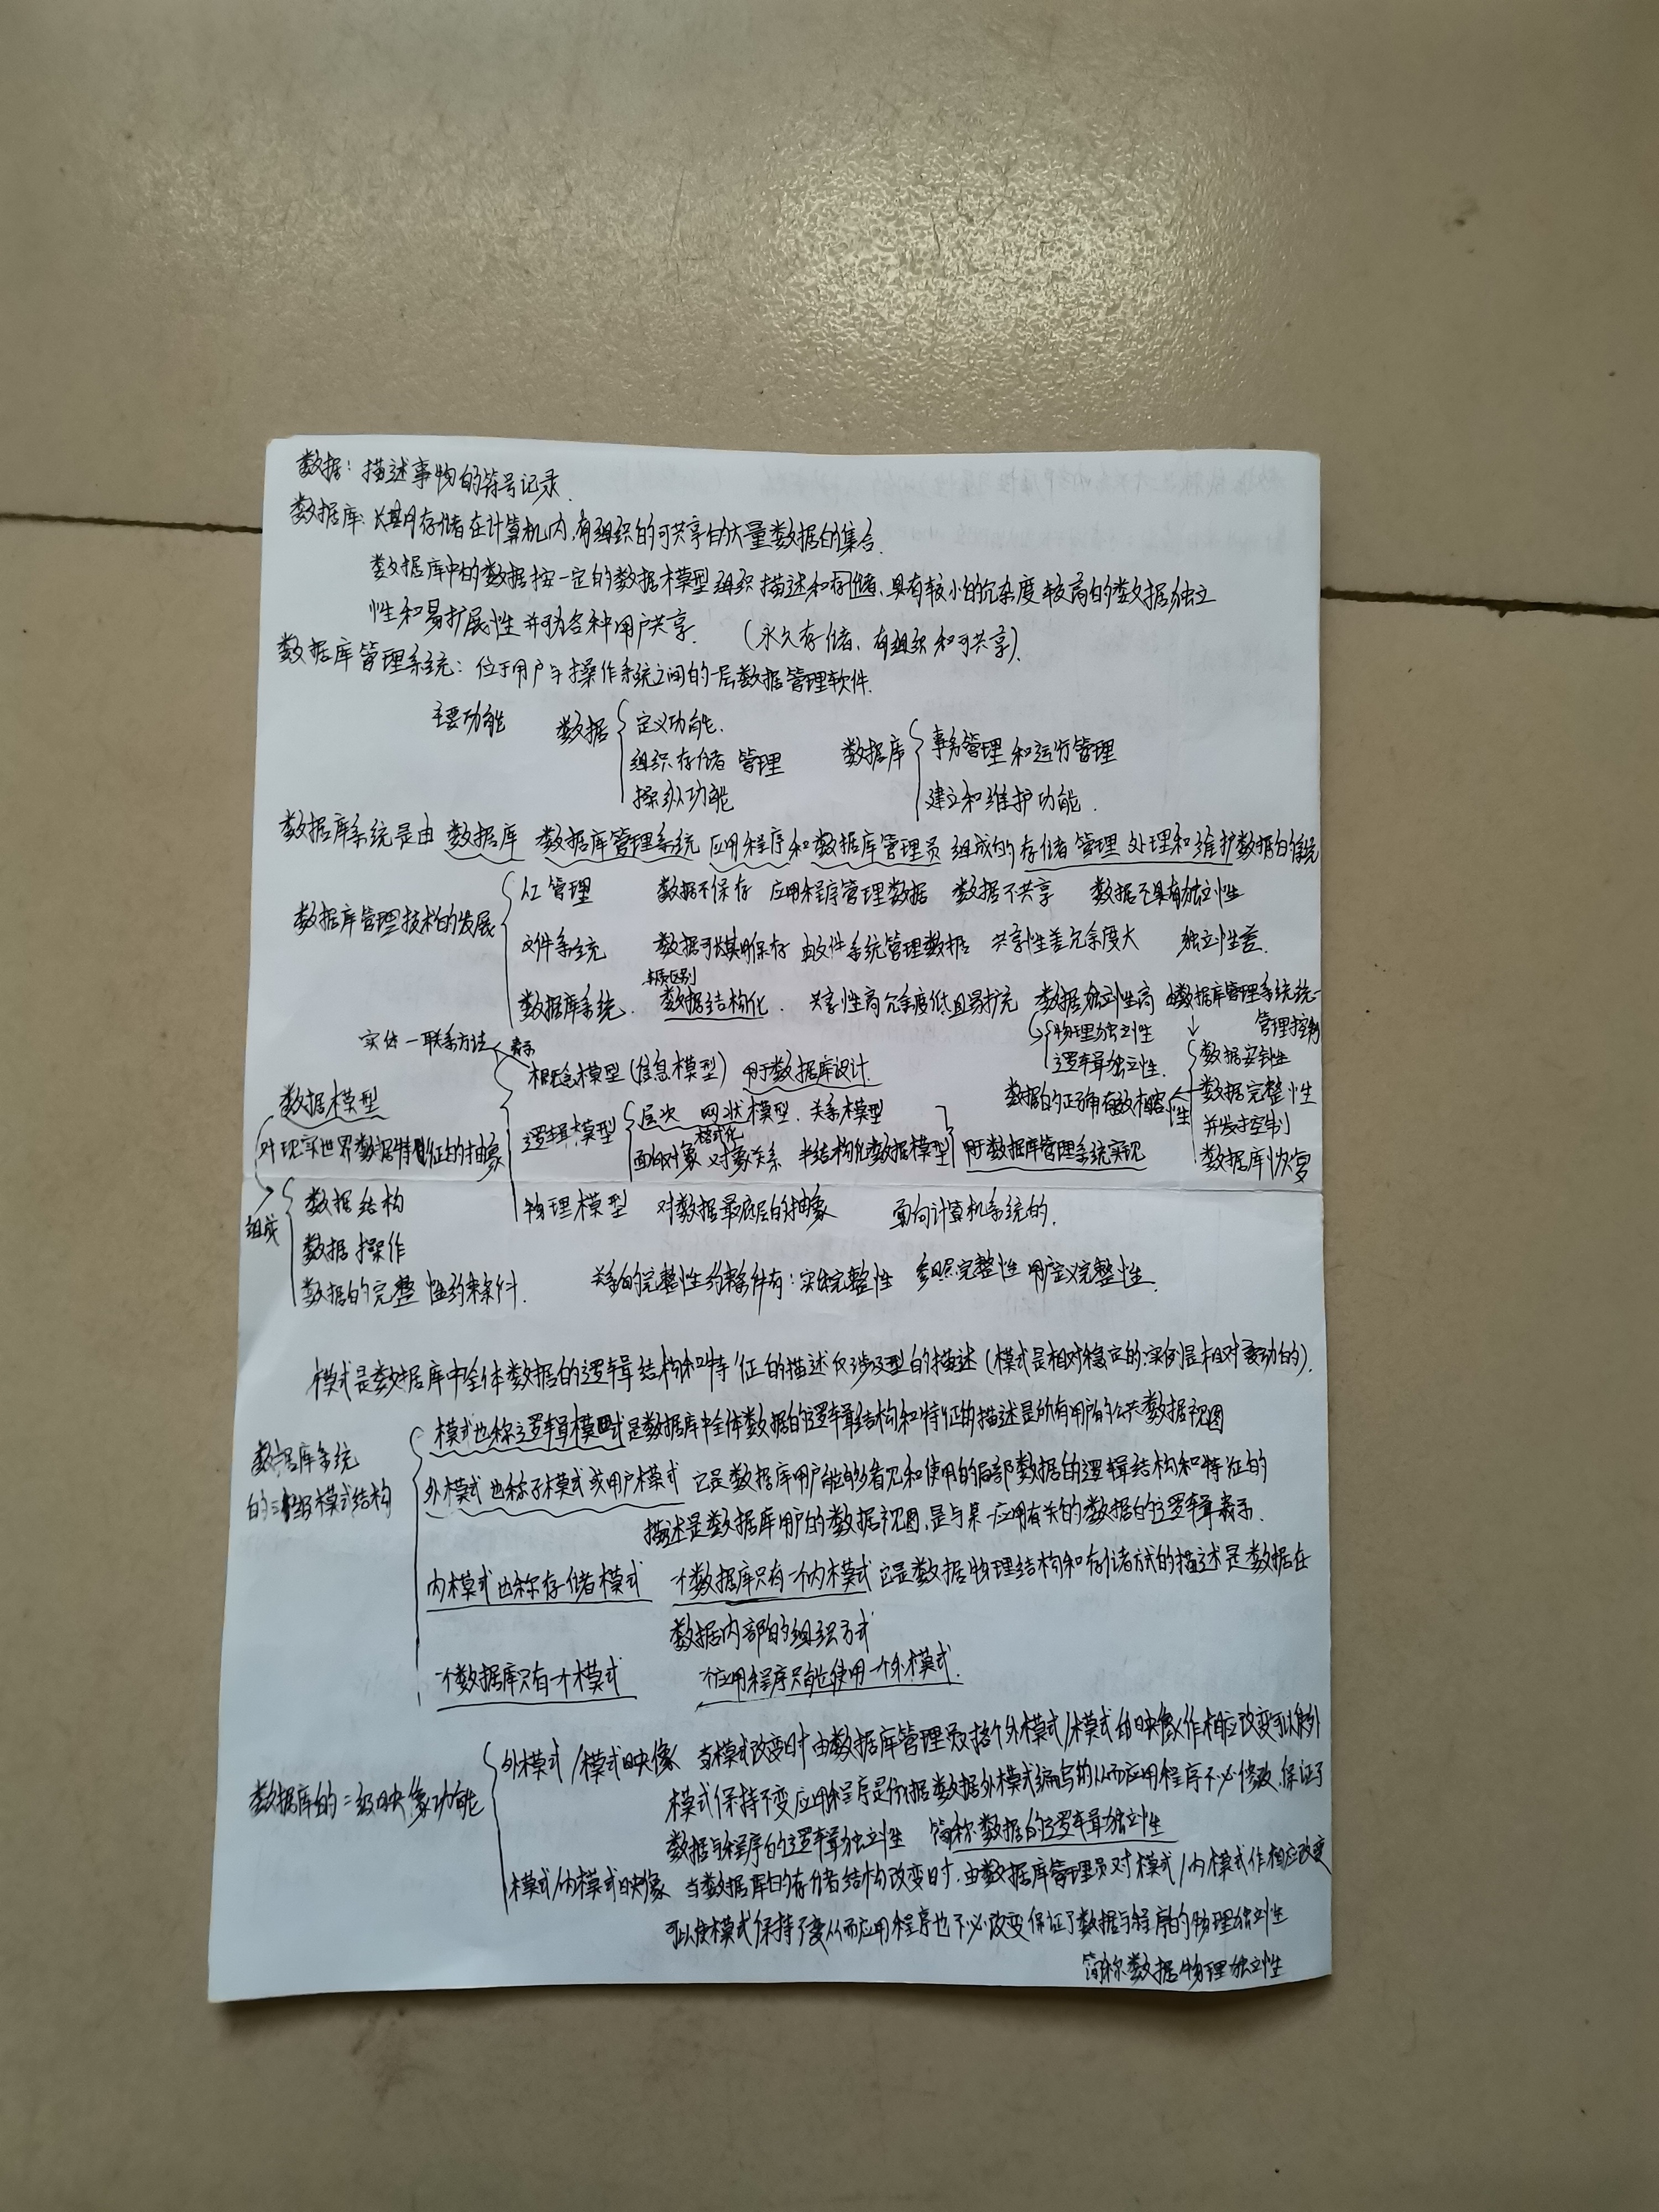 数据：描述事物的符号记录.
数据库：长期存储在计算机内,有组织的可共享的大量数据的集合.
数据库中的数据按一定的数据模型组织描述和存储、具有较小的冗余度较高的数据独立
性和易扩展性并可为各种用户共享. (永久存储、有组织和可共享).
数据库管理系统：位于用户与操作系统之间的一层数据管理软件.
主要功能 数据 定义功能. 数据库 事务管理和运行管理
组织存储管理
操纵功能 建立和维护功能.
数据库系统是由数据库 数据库管理系统 应用程序和数据库管理员 组成的存储 管理 处理和维护数据的系统
人工管理 数据不保存 应用程序管理数据 数据不共享 数据不具有独立性
数据库管理技术的发展
文件系统 数据可长期保存 由文件系统管理数据 共享性差冗余度大 独立性差.
本质区别
数据库系统. 数据结构化. 共享性高冗余度低且易扩充 数据独立性高 由数据库管理系统统一
管理控制
物理独立性
逻辑独立性.
数据安全性
数据完整性
并发控制
数据库恢复
数据的正确有效相容性
实体—联系方法 表示
概念模型(信息模型) 用于数据库设计.
数据模型
对现实世界数据特征的抽象
逻辑模型 层次 网状模型. 关系模型
格式化
面向对象 对象关系 半结构化数据模型 用于数据库管理系统实现
物理模型 对数据最底层的抽象 面向计算机系统的.
组成
数据结构
数据操作
数据的完整性约束条件. 关系的完整性约束条件有：实体完整性 参照完整性 用户定义完整性.
模式是数据库中全体数据的逻辑结构和特征的描述仅涉及型的描述(模式是相对稳定的;实例是相对变动的).
模式也称逻辑模式是数据库中全体数据的逻辑结构和特征的描述是所有用户的公共数据视图
数据库系统
的三级模式结构
外模式也称子模式或用户模式 它是数据库用户能够看见和使用的局部数据的逻辑结构和特征的
描述是数据库用户的数据视图,是与某一应用有关的数据的逻辑表示.
内模式也称存储模式 一个数据库只有一个内模式 它是数据物理结构和存储方式的描述是数据在
数据内部的组织方式
一个数据库只有一个模式 一个应用程序只能使用一个外模式.
外模式/模式映像 当模式改变时由数据库管理员对各个外模式/模式的映像作相应改变可以使外
数据库的二级映像功能
模式保持不变应用程序是依据数据外模式编写的从而应用程序不必修改.保证了
数据与程序的逻辑独立性 简称数据的逻辑独立性
模式/内模式映像 当数据库的存储结构改变时.由数据库管理员对模式/内模式作相应改变
可以使模式保持不变从而应用程序也不必改变 保证了数据与程序的物理独立性
简称数据物理独立性